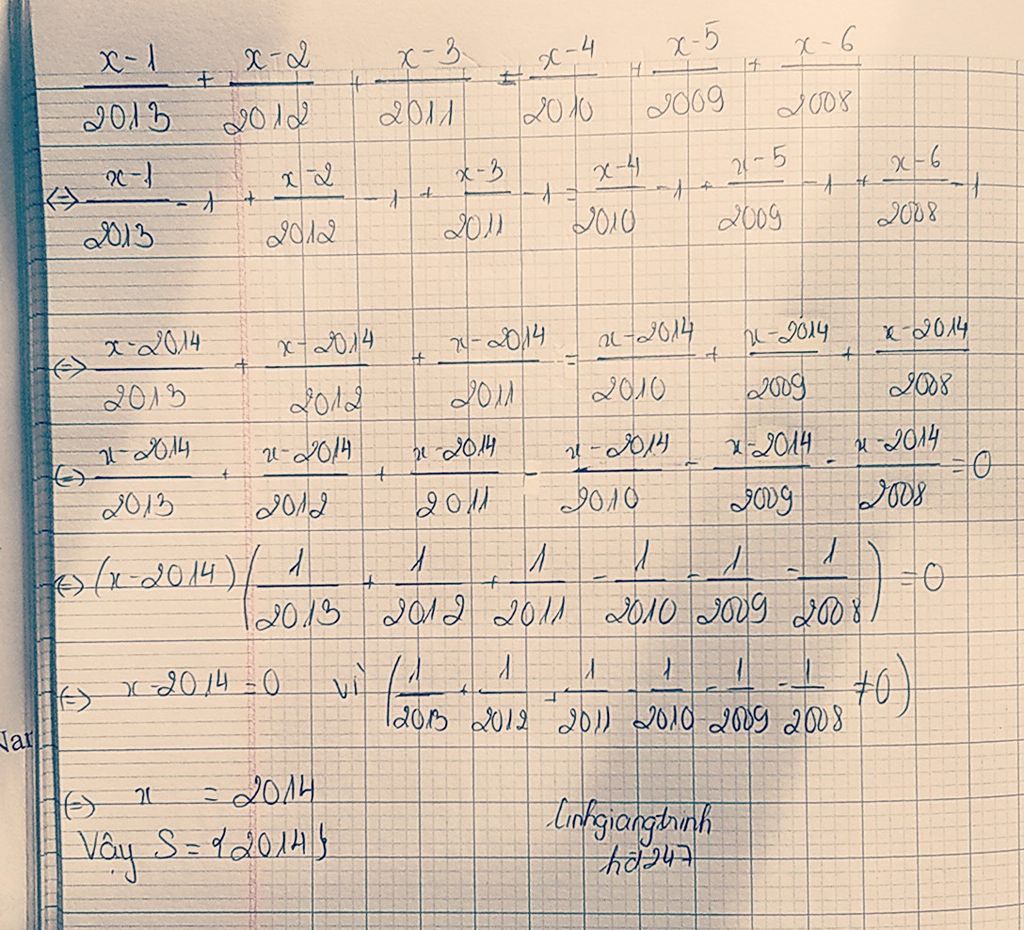 x-1/2013 + x-2/2012 + x-3/2011 = x-4/2010 + x-5/2009 + x-6/2008
⇔ x-1/2013 - 1 + x-2/2012 - 1 + x-3/2011 - 1 = x-4/2010 - 1 + x-5/2009 - 1 + x-6/2008 - 1
⇔ x-2014/2013 + x-2014/2012 + x-2014/2011 = x-2014/2010 + x-2014/2009 + x-2014/2008
⇔ x-2014/2013 + x-2014/2012 + x-2014/2011 - x-2014/2010 - x-2014/2009 - x-2014/2008 = 0
⇔ (x-2014) (1/2013 + 1/2012 + 1/2011 - 1/2010 - 1/2009 - 1/2008) = 0
⇔ x-2014 = 0 vì (1/2013 + 1/2012 + 1/2011 - 1/2010 - 1/2009 - 1/2008 ≠ 0)
⇔ x = 2014
Vậy S = {2014}
linhgiangtrinh
hd247